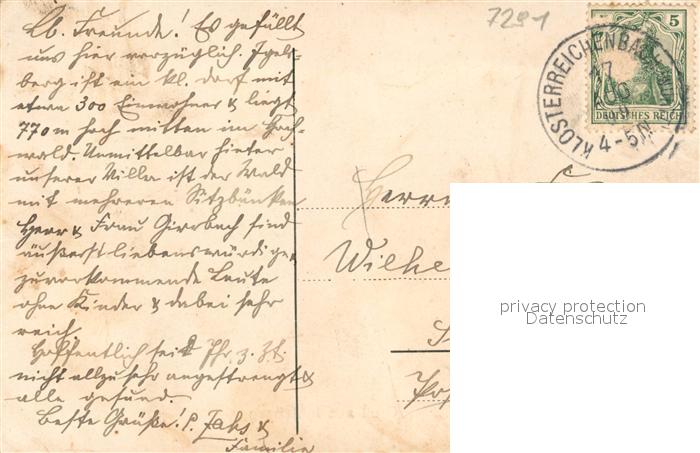 7291
Lb. Freunde! Es gefällt
uns hier vorzüglich. Igels-
berg ist ein kl. Dorf mit
etwa 300 Einwohner & liegt
770 m hoch mitten im Hoch-
wald. Unmittelbar hinter
unserer Villa ist der Wald
mit mehreren Sitzbänken
Herr & Frau Girrbach sind
äußerst liebenswürdige,
zuvorkommende Leute
ohne Kinder & dabei sehr
reich.
Hoffentlich seid Ihr z. Zt.
nicht allzusehr angestrengt &
alle gesund.
Beste Grüße! P. &
Familie
5
DEUTSCHES REICH
KLOSTERREICHENBACH
17
AUG
4-5N
Herrn
Wilhe
privacy protection
Datenschutz